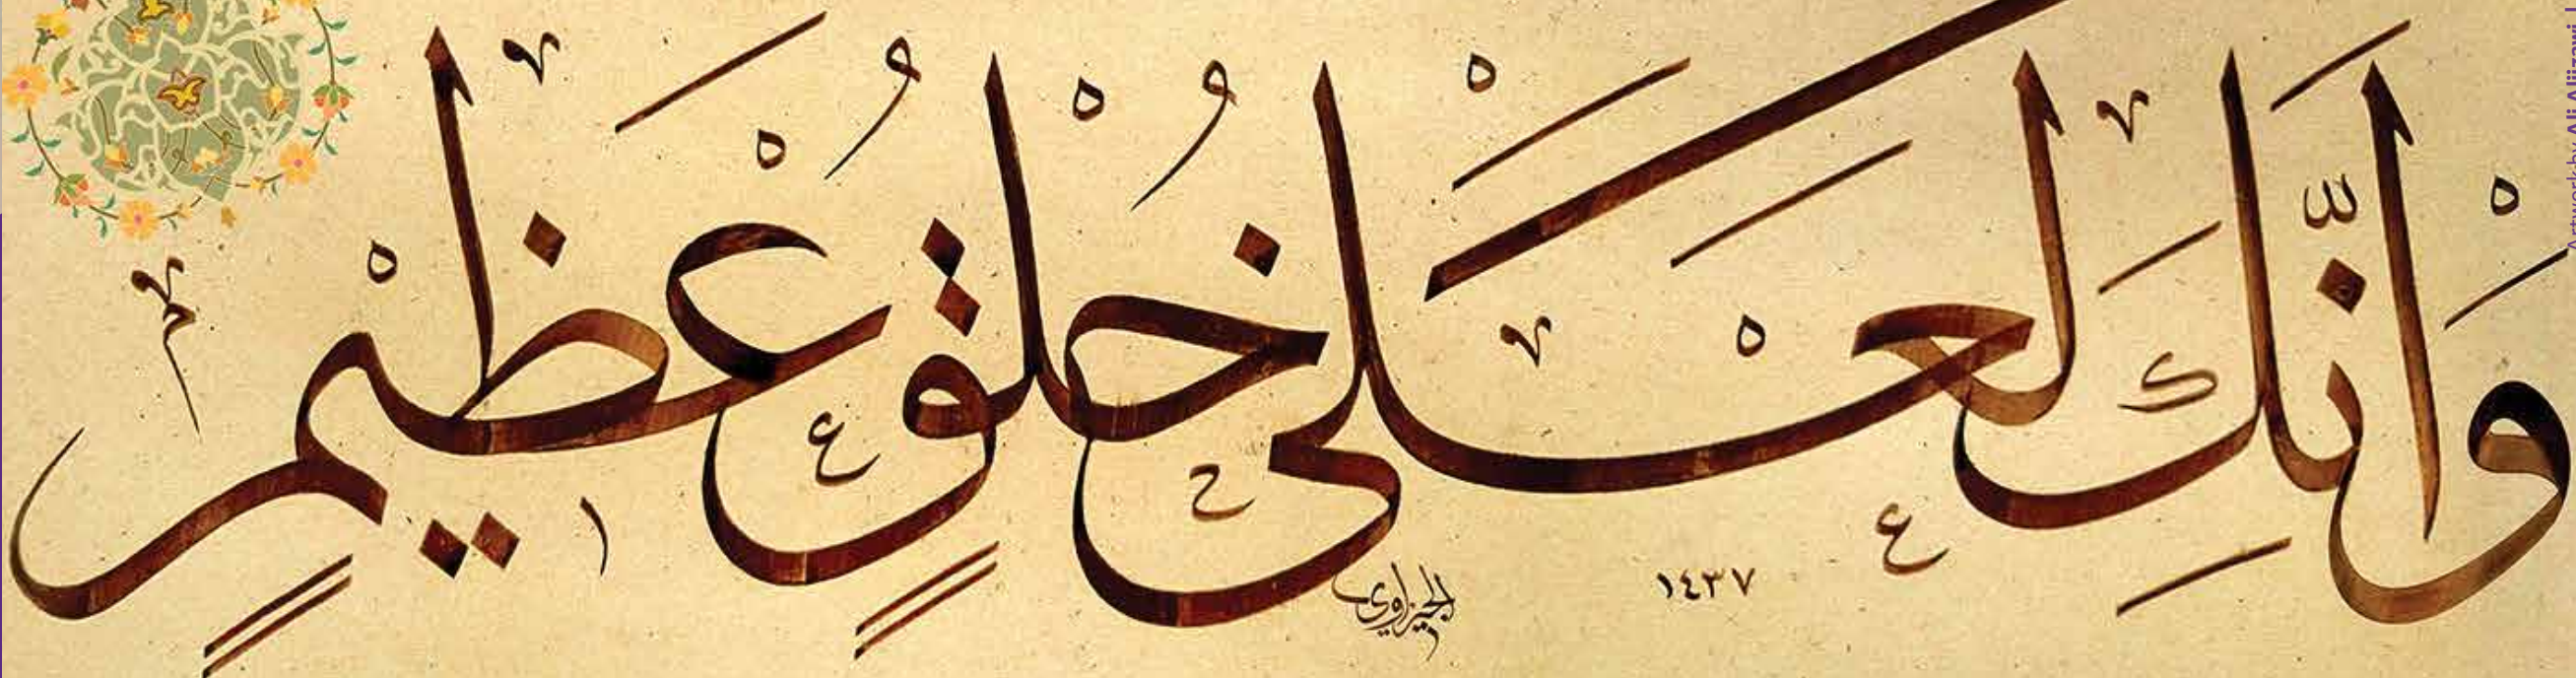 وَإنَّكَ لَعَلَى خُلُقٍ عَظِيمٍ
الجيزاوي
١٤٣٧
Artwork by Ali Aljizawi |